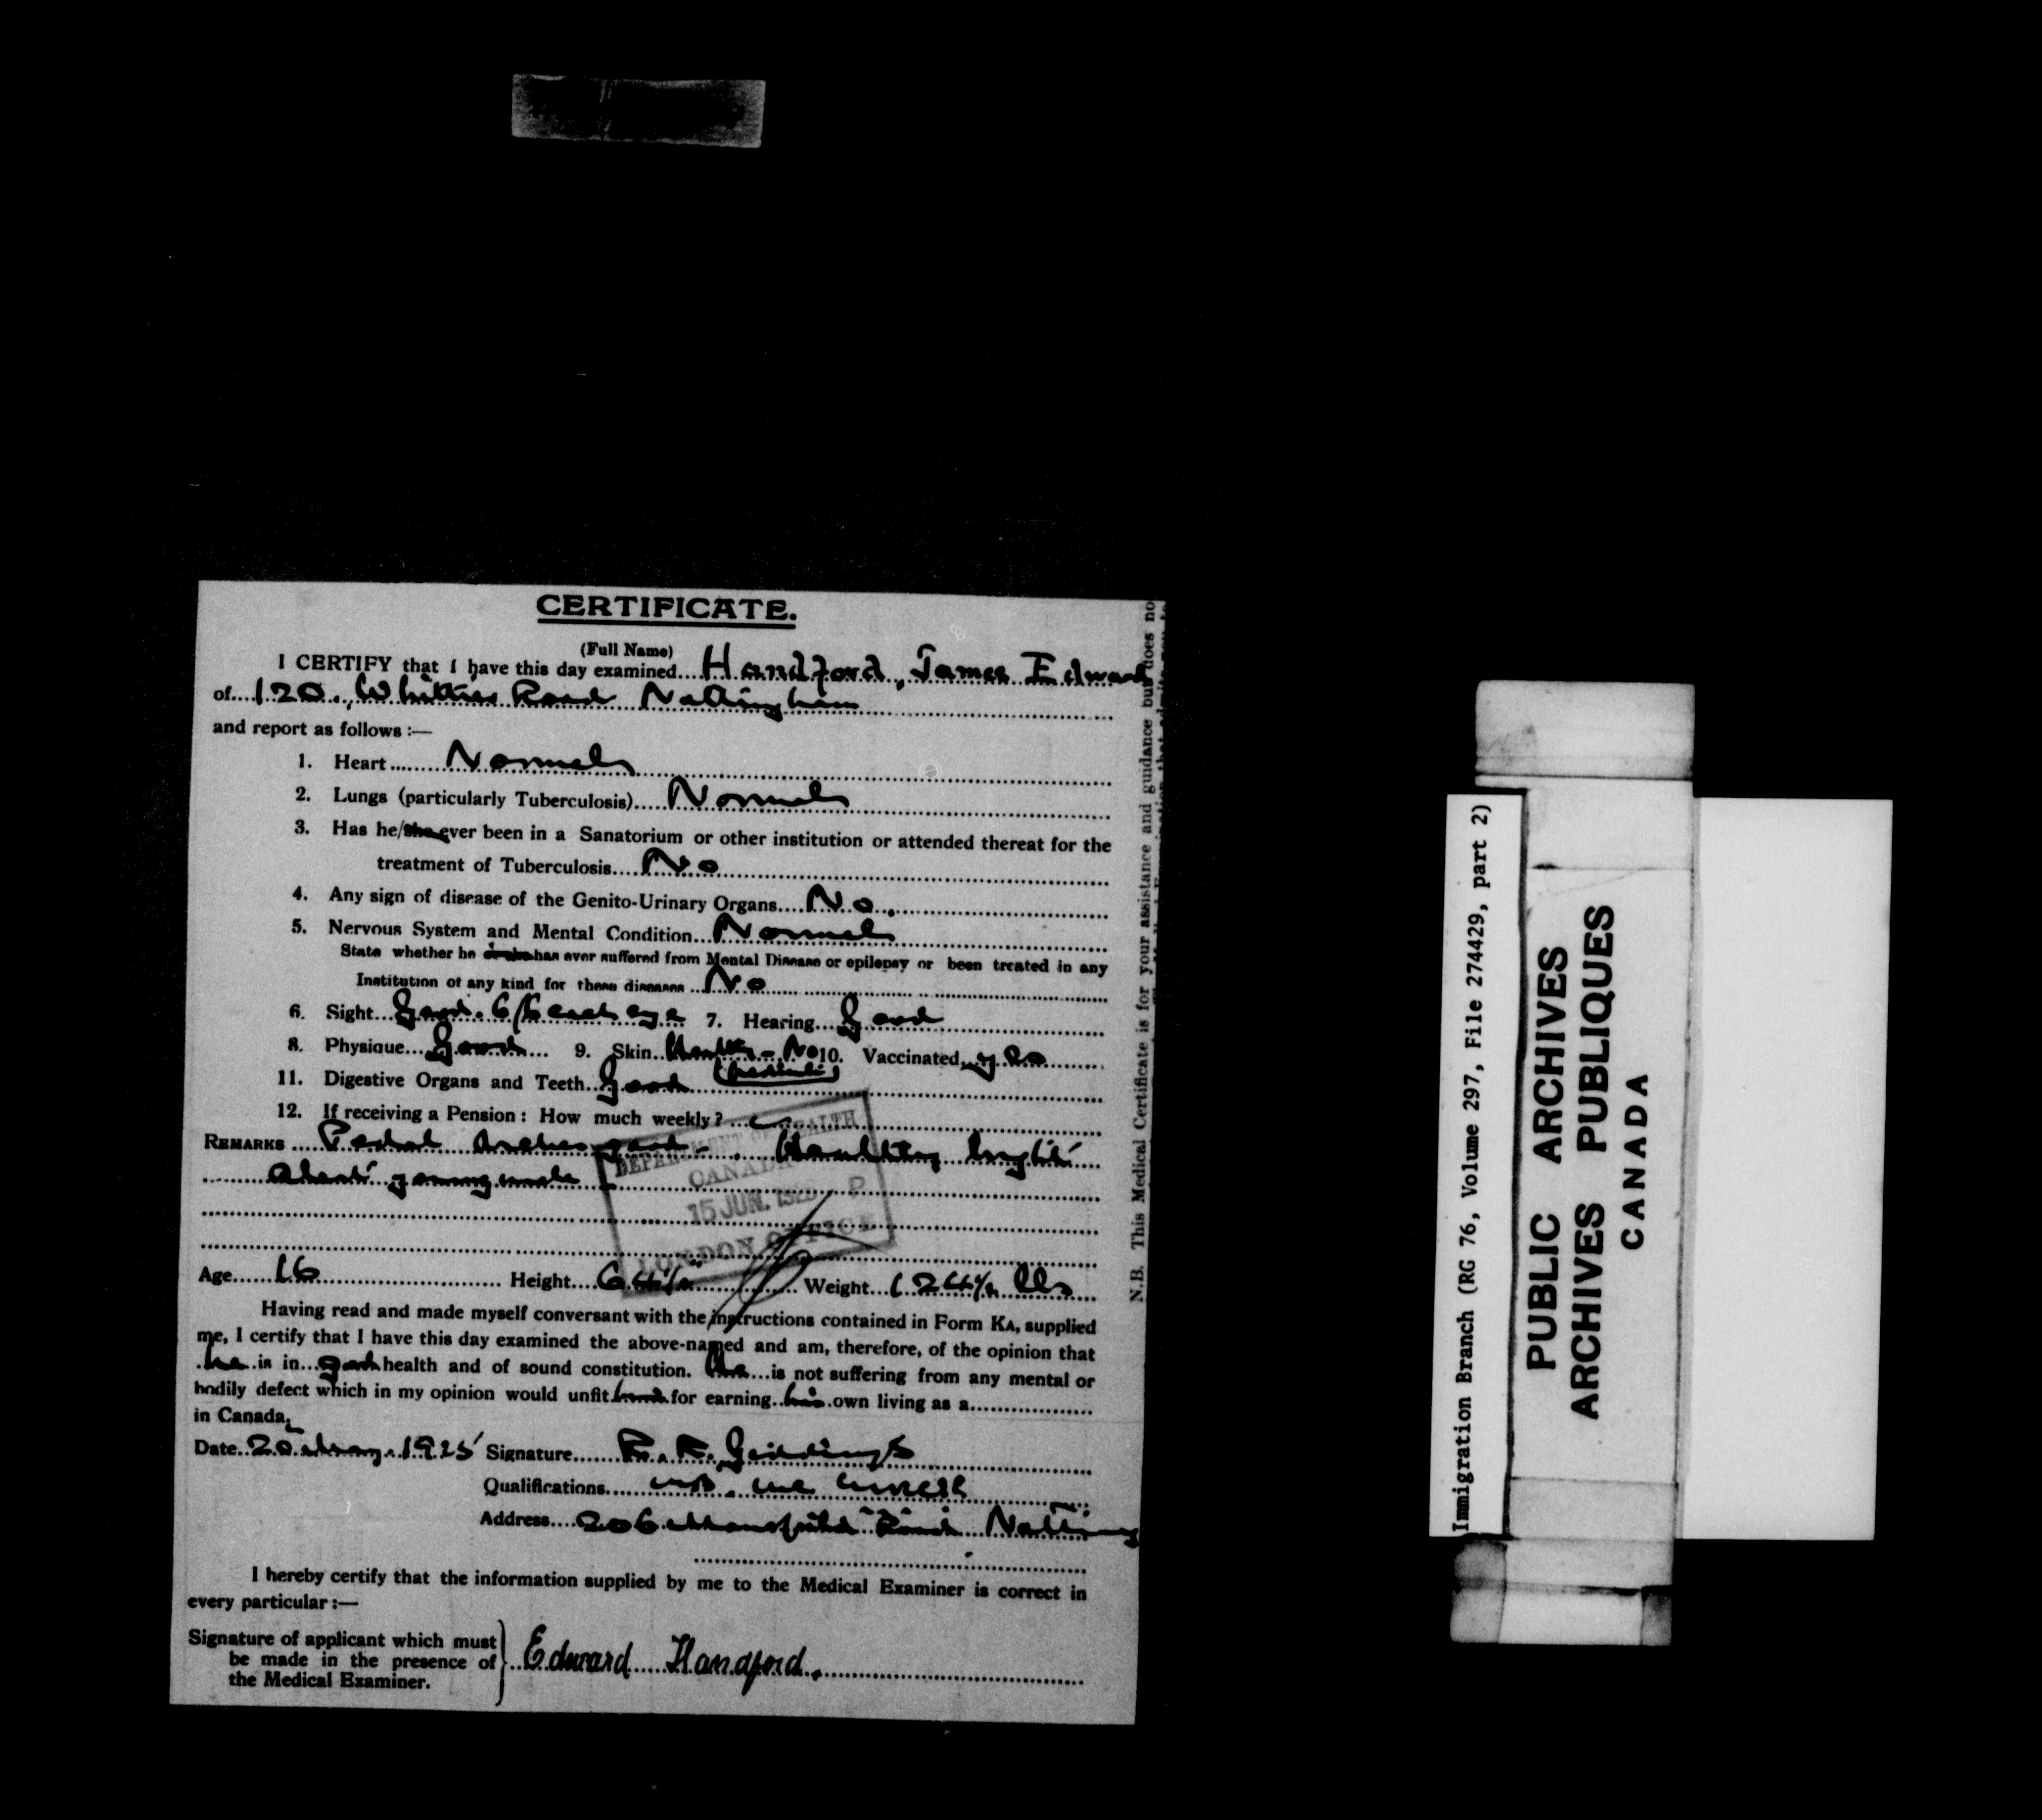 CERTIFICATE.
(Full Name)
I CERTIFY that I have this day examined....Handford, James Edward
of....120., Road Nottingham
and report as follows :—
1. Heart......Normal
2. Lungs (particularly Tuberculosis)....Normal
3. Has he/she ever been in a Sanatorium or other institution or attended thereat for the
treatment of Tuberculosis....No
4. Any sign of disease of the Genito-Urinary Organs....No.
5. Nervous System and Mental Condition...Normal
State whether he or she has ever suffered from Mental Disease or epilepsy or been treated in any
Institution of any kind for these diseases...No
6. Sight...Good. 6/6 each eye 7. Hearing....Good
8. Physique...Good... 9. Skin..Healthy - No 10. Vaccinated...yes
(pediculi)
11. Digestive Organs and Teeth...Good
12. If receiving a Pension : How much weekly ?...
REMARKS.... Pedal Arches good - . Healthy bright
alert young male
DEPARTMENT OF HEALTH
CANADA
15 JUN. P
LONDON OFFICE
Age......16 Height....64½" Weight...124½ lbs
Having read and made myself conversant with the instructions contained in Form KA, supplied
me, I certify that I have this day examined the above-named and am, therefore, of the opinion that
.he..is in...good health and of sound constitution. He...is not suffering from any mental or
bodily defect which in my opinion would unfit him for earning..his.own living as a..................
in Canada.
Date..20 May. 1925 Signature.......R. R. Giddings
Qualifications......
Address....206 Mansfield Road Notting
I hereby certify that the information supplied by me to the Medical Examiner is correct in
every particular :—
Signature of applicant which must
be made in the presence of
the Medical Examiner.
Edward Handford.
N.B. This Medical Certificate is for your assistance and guidance but does no
Immigration Branch (RG 76, Volume 297, File 274429, part 2)
PUBLIC ARCHIVES
ARCHIVES PUBLIQUES
CANADA